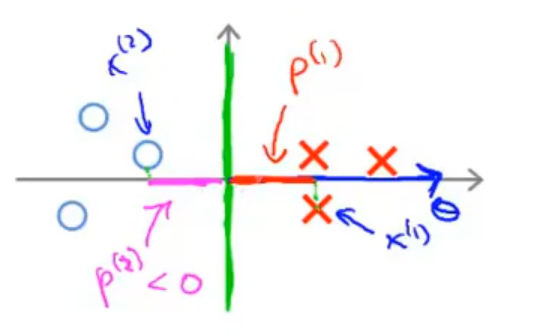 x⁽²⁾
p⁽¹⁾
θ
x⁽¹⁾
p⁽²⁾ < 0